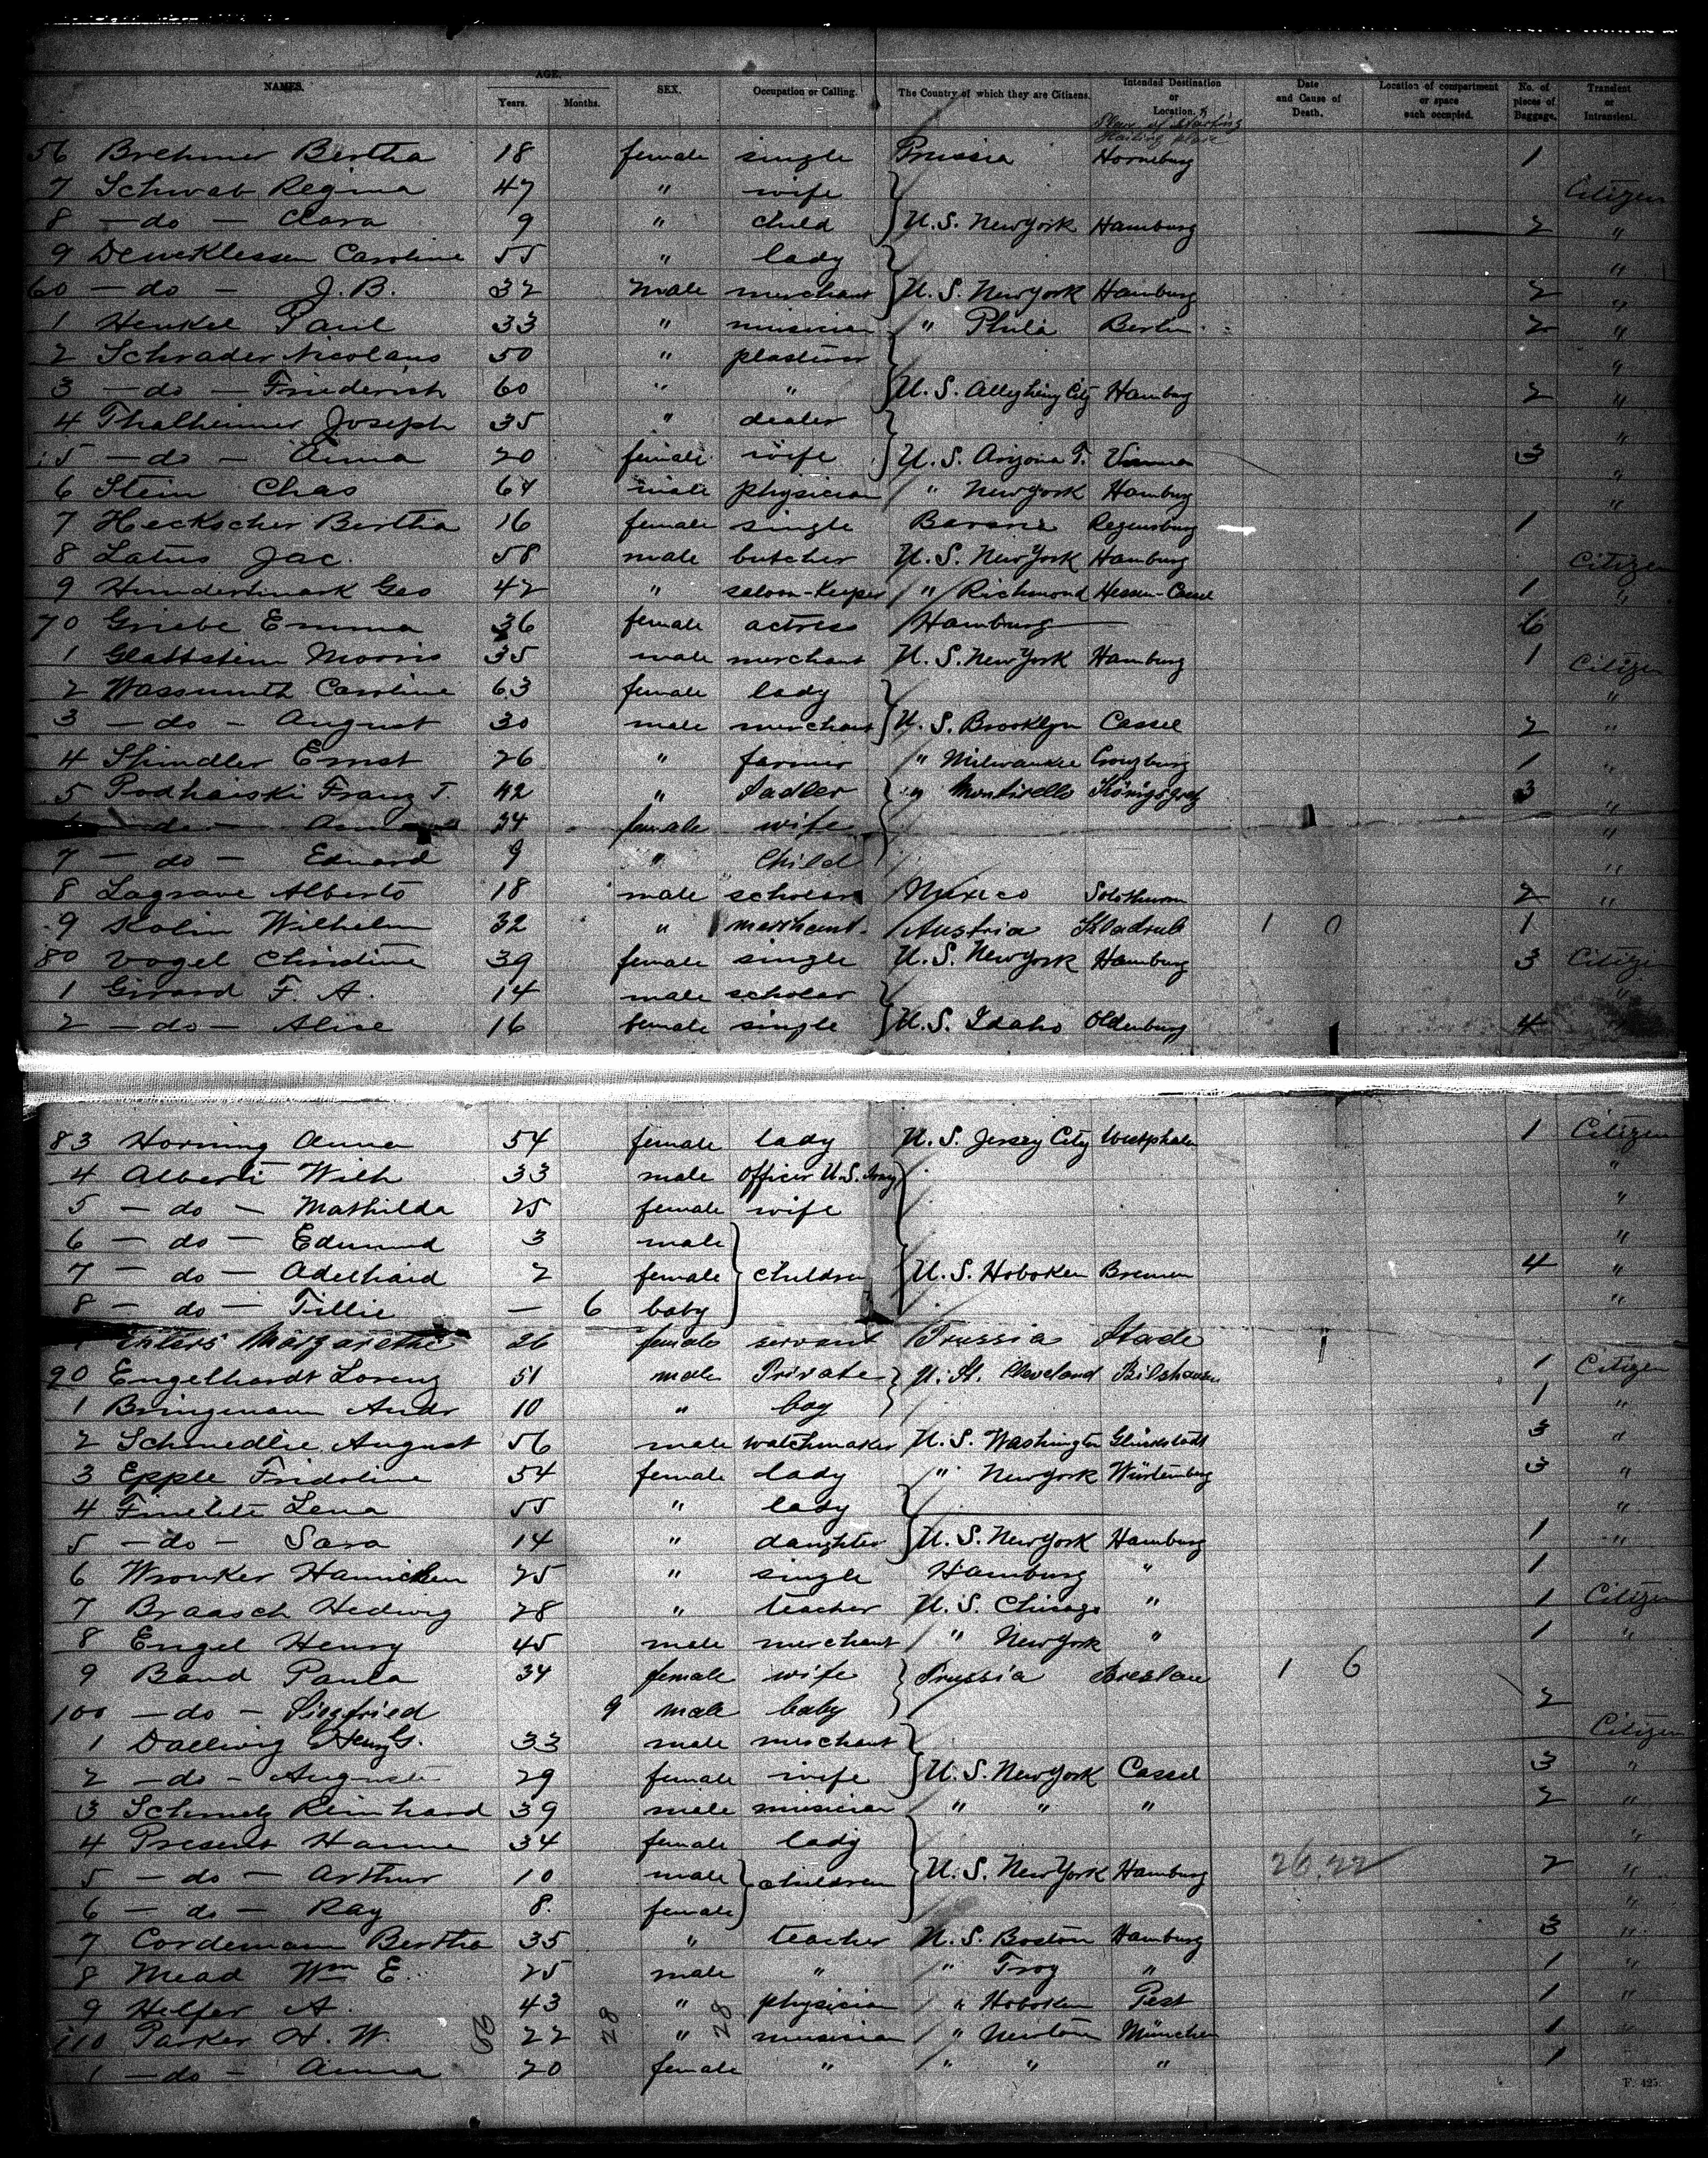 NAMES. AGE. Years. Months. SEX. Occupation or Calling. The Country of which they are Citizens. Intended Destination or Location. Date and Cause of Death. Location of compartment or space each occupied. No. of pieces of Baggage. Transient or Intransient.
Place of starting
56 Brehmer Bertha 18 female single Prussia Horneburg 1
7 Schwab Regina 47 " wife Citizen
8 — do — Clara 9 " child U.S. New York Hamburg 2 "
9 Caroline 55 " lady "
60 — do — J. B. 32 male merchant U.S. New York Hamburg 2 "
1 Henkel Paul 33 " musician " Phila Berlin 2 "
2 Schrader Nicolaus 50 " plasterer "
3 — do — Friederich 60 " " U.S. Allegheny City Hamburg 2 "
4 Thalheimer Joseph 35 " dealer "
5 — do — Anna 20 female wife U.S. Arizona T. Vienna 3 "
6 Stein Chas 64 male physician " New York Hamburg "
7 Heckscher Bertha 16 female single Bavaria Regensburg 1
8 Latus Jac. 58 male butcher U.S. New York Hamburg Citizen
9 Hundertmark Geo 42 " saloon-keeper " Richmond Hessen-Cassel 1 "
70 Griebe Emma 36 female actress Hamburg — 6
1 Glattstein Morris 35 male merchant U.S. New York Hamburg 1 Citizen
2 Wassmuth Caroline 63 female lady "
3 — do — August 30 male merchant U.S. Brooklyn Cassel 2 "
4 Spindler Ernst 26 " farmer " Milwaukee 1 "
5 Podhaiski Franz T 42 " Sadler " Monticello Königsgrätz 3 "
— do — 34 female wife "
7 — do — Eduard 9 " Child "
8 Lagrave Alberto 18 male scholar Mexico Solothurn 2 "
9 Kolin Wilhelm 32 " merchant Austria Kladrub 1 0 1
80 Vogel Christine 39 female single U.S. New York Hamburg 3 Citizen
1 Girard F. A. 14 male scholar "
2 — do — Alise 16 female single U.S. Idaho Oldenburg 4
83 Horning Anna 54 female lady U.S. Jersey City Westphalen 1 Citizen
4 Alberti Wilh 33 male officer U.S. Army "
5 — do — Mathilda 25 female wife "
6 — do — Edmund 3 male "
7 — do — Adelhaid 2 female children U.S. Hoboken Bremen 4 "
8 — do — Tillie — 6 baby "
Ehlers Margarethe 26 female servant Prussia Stade
90 Engelhardt Lorenz 51 male Private U. St. Cleveland Bilshausen 1 Citizen
1 Bringmann Andr 10 " boy 1 "
2 Schmedlie August 56 male watchmaker U.S. Washington Glückstadt 3 "
3 Epple Fridoline 54 female lady " New York Würtemberg 3 "
4 Lena 55 " lady "
5 — do — Sara 14 " daughter U.S. New York Hamburg 1 "
6 Wronker Hannchen 25 " single Hamburg " 1
7 Braasch Hedwig 28 " teacher U.S. Chicago " 1 Citizen
8 Engel Henry 45 male merchant " New York " 1 "
9 Band Paula 34 female wife Prussia Breslau 1 6
100 — do — Siegfried 9 male baby 2
1 Dallwig Henry G. 33 male merchant Citizen
2 — do — Auguste 29 female wife U.S. New York Cassel 3 "
3 Schmelz Reinhard 39 male musician " " " 2 "
4 Present Hanne 34 female lady "
5 — do — Arthur 10 male children U.S. New York Hamburg 26.22 2 "
6 — do — Ray 8. female "
7 Cordemann Bertha 35 " teacher U.S. Boston Hamburg 3 "
8 Mead Wm E. 25 male " " Troy " 1 "
9 Helfer A. 43 " physician " Hoboken Pest 1 "
110 Parker H. W. 22 " musician " Newton München 1 "
1 — do — Anna 20 female " " " " 1
28 28
F. 425.